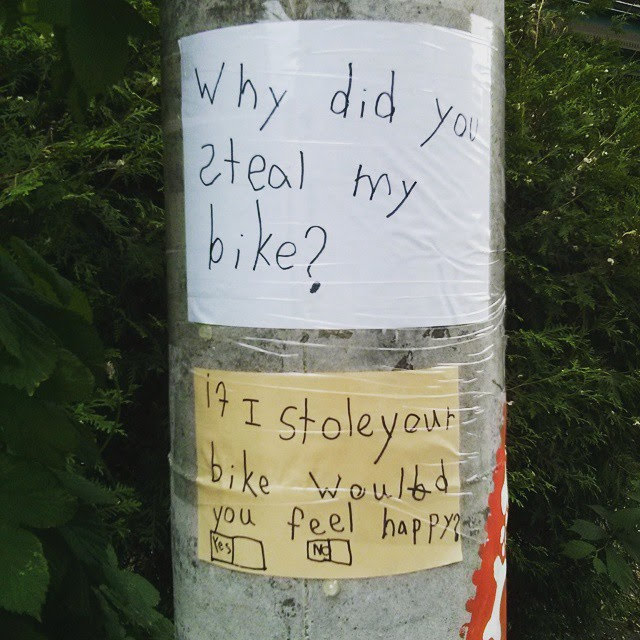 Why did you
steal my
bike?
if I stole your
bike would
you feel happy?
Yes No